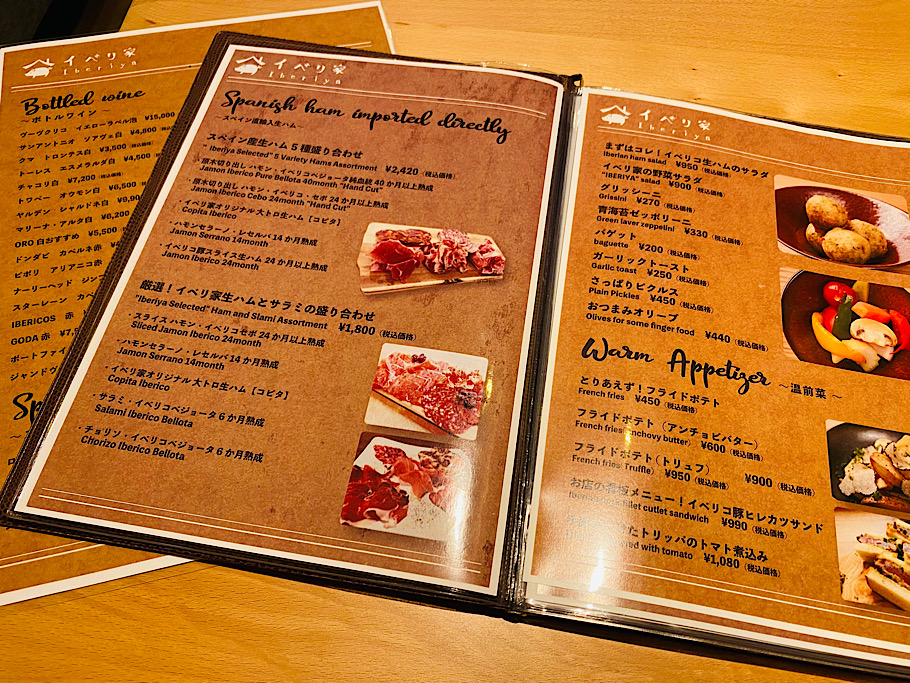 イベリ家
Iberiya
Bottled wine
～ボトルワイン～
ヴーヴクリコ イエローラベル泡 ¥15,000
サンアントニオ ソアヴェ白 ¥4,800
クマ トロンテス白 ¥3,500
トーレス エスメラルダ白 ¥4,500
チャコリ白 ¥7,200（税込価格）
トワベー オウモン白 ¥6,500
ヤルデン シャルドネ白 ¥9,90
マリーナ・アルタ白 ¥6,200
ORO 白おすすめ ¥5,500
ドンダビ カベルネ赤
ピポリ アリアニコ赤
ナーリーヘッド ジン
スターレーン カベ
IBERICOS 赤
GODA 赤 ¥7,
ポートファイ
ジャンドヴ
Sp
イベリ家
Iberiya
Spanish ham imported directly
～スペイン直輸入生ハム～
スペイン産生ハム 5 種盛り合わせ
"Iberiya Selected" 5 Variety Hams Assortment ¥2,420（税込価格）
・原木切り出し ハモン・イベリコベジョータ純血統 40 か月以上熟成
Jamon Iberico Pure Bellota 40month "Hand Cut"
・原木切り出し ハモン・イベリコ・セボ 24 か月以上熟成
Jamon Iberico Cebo 24month "Hand Cut"
・イベリ家オリジナル 大トロ生ハム【コピタ】
Copita Iberico
・ハモンセラーノ・レセルバ 14 か月熟成
Jamon Serrano 14month
・イベリコ豚スライス生ハム 24 か月以上熟成
Jamon Iberico 24month
厳選！イベリ家生ハムとサラミの盛り合わせ
"Iberiya Selected" Ham and Slami Assortment ¥1,800（税込価格）
・スライス ハモン・イベリコセボ 24 か月以上熟成
Sliced Jamon Iberico 24month
・ハモンセラーノ・レセルバ 14 か月熟成
Jamon Serrano 14month
・イベリ家オリジナル 大トロ生ハム【コピタ】
Copita Iberico
・サラミ・イベリコベジョータ 6 か月熟成
Salami Iberico Bellota
・チョリソン・イベリコベジョータ 6 か月熟成
Chorizo Iberico Bellota
イベリ家
Iberiya
まずはコレ！イベリコ生ハムのサラダ
Iberian ham salad ¥950（税込価格）
イベリ家の野菜サラダ
"IBERIYA" salad ¥900（税込価格）
グリッシーニ
Grissini ¥270（税込価格）
青海苔ゼッポリーニ
Green laver zeppelini ¥330（税込価格）
バゲット
baguette ¥200（税込価格）
ガーリックトースト
Garlic toast ¥250（税込価格）
さっぱりピクルス
Plain Pickles ¥450（税込価格）
おつまみオリーブ
Olives for some finger food ¥440（税込価格）
Warm Appetizer ～温前菜～
とりあえず！フライドポテト
French fries ¥450（税込価格）
フライドポテト（アンチョビバター）
French fries(Anchovy butter) ¥600（税込価格）
フライドポテト（トリュフ） ¥900（税込価格）
French fries(Truffle) ¥950（税込価格）
お店の看板メニュー！イベリコ豚ヒレカツサンド
filet cutlet sandwich ¥990（税込価格）
たトリッパのトマト煮込み
with tomato ¥1,080（税込価格）